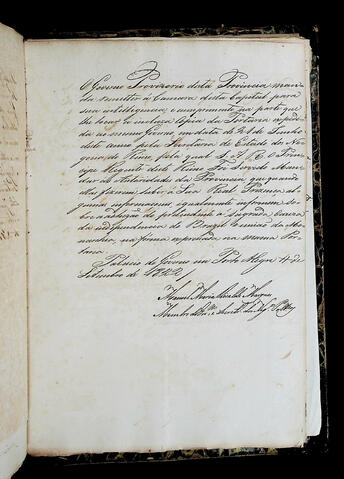 O Governo Provizorio desta Provincia man-
da remetter á Camara desta Capital para
sua intelligencia, e cumprimento na parte que
lhe toca, a incluza Copia da Portaria expedi-
da ao mesmo Governo, em data de 21 de Junho
deste anno pela Secretaria de Estado dos Ne-
gocios do Reino, pela qual S. A. R. o Prin-
cipe Regente deste Reino Foi Servido Man-
dar ás Autoridades da Provincia, que quando
fizerem saber á Sua Real Prezença al-
gumas informaçoens igualmente informem so-
bre a adheção do pretendente á sagrada Cauza
da independencia do Brazil e união da Mo-
narchia, na forma expressada na mesma Por-
taria.
Palacio do Governo em Porto Alegre 4 de
Setembro de 1822
Manoel Maria
Membro